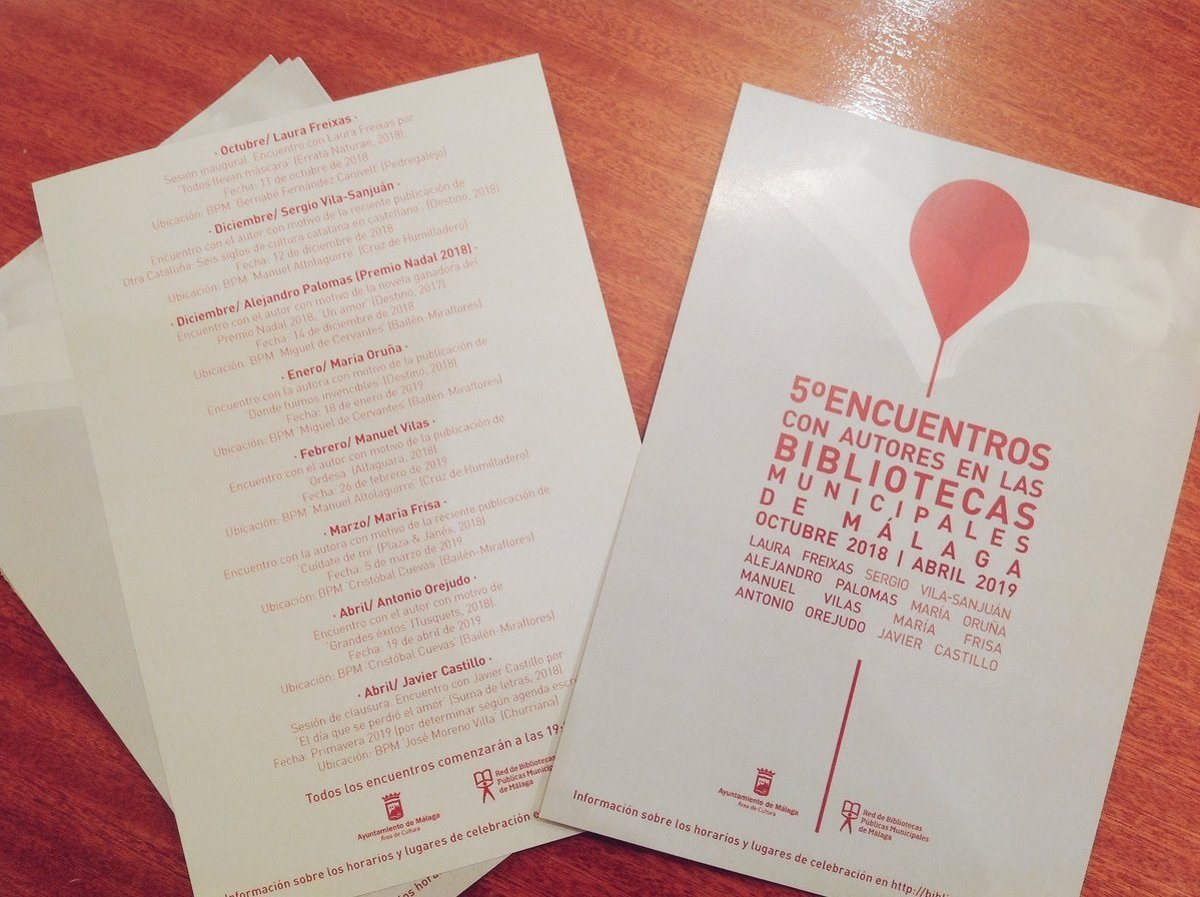 · Octubre/ Laura Freixas ·
Sesión inaugural. Encuentro con Laura Freixas por
'Todos llevan máscara' (Errata Naturae, 2018).
Fecha: 11 de octubre de 2018
Ubicación: BPM 'Bernabé Fernández Canivell' (Pedregalejo)
· Diciembre/ Sergio Vila-Sanjuán ·
Encuentro con el autor con motivo de la reciente publicación de
Otra Cataluña. Seis siglos de cultura catalana en castellano'. (Destino, 2018).
Fecha: 12 de diciembre de 2018
Ubicación: BPM 'Manuel Altolaguirre' (Cruz de Humilladero)
· Diciembre/ Alejandro Palomas (Premio Nadal 2018) ·
Encuentro con el autor con motivo de la novela ganadora del
Premio Nadal 2018, 'Un amor' (Destino, 2017)
Fecha: 14 de diciembre de 2018
Ubicación: BPM 'Miguel de Cervantes' (Bailén-Miraflores)
· Enero/ María Oruña ·
Encuentro con la autora con motivo de la publicación de
'Donde fuimos invencibles' (Destino, 2018)
Fecha: 18 de enero de 2019
Ubicación: BPM 'Miguel de Cervantes' (Bailén-Miraflores)
· Febrero/ Manuel Vilas ·
Encuentro con el autor con motivo de la publicación de
'Ordesa' (Alfaguara, 2018)
Fecha: 26 de febrero de 2019
Ubicación: BPM 'Manuel Altolaguirre' (Cruz de Humilladero)
· Marzo/ María Frisa ·
Encuentro con la autora con motivo de la reciente publicación de
'Cuídate de mí' (Plaza & Janés, 2018)
Fecha: 5 de marzo de 2019
Ubicación: BPM 'Cristóbal Cuevas' (Bailén-Miraflores)
· Abril/ Antonio Orejudo ·
Encuentro con el autor con motivo de
'Grandes éxitos' (Tusquets, 2018).
Fecha: 19 de abril de 2019
Ubicación: BPM 'Cristóbal Cuevas' (Bailén-Miraflores)
· Abril/ Javier Castillo ·
Sesión de clausura. Encuentro con Javier Castillo por
'El día que se perdió el amor' (Suma de letras, 2018).
Fecha: Primavera 2019 (por determinar según agenda escri
Ubicación: BPM 'José Moreno Villa' (Churriana)
Todos los encuentros comenzarán a las 19
Ayuntamiento de Málaga
Área de Cultura
Red de Bibliotecas
Públicas Municipale
de Málaga
Información sobre los horarios y lugares de celebración en
5º ENCUENTROS
CON AUTORES EN LAS
BIBLIOTECAS
MUNICIPALES
DE MÁLAGA
OCTUBRE 2018 | ABRIL 2019
LAURA FREIXAS SERGIO VILA-SANJUÁN
ALEJANDRO PALOMAS MARÍA ORUÑA
MANUEL VILAS MARÍA FRISA
ANTONIO OREJUDO JAVIER CASTILLO
Ayuntamiento de Málaga
Área de Cultura
Red de Bibliotecas
Públicas Municipales
de Málaga
Información sobre los horarios y lugares de celebración en http://bibli